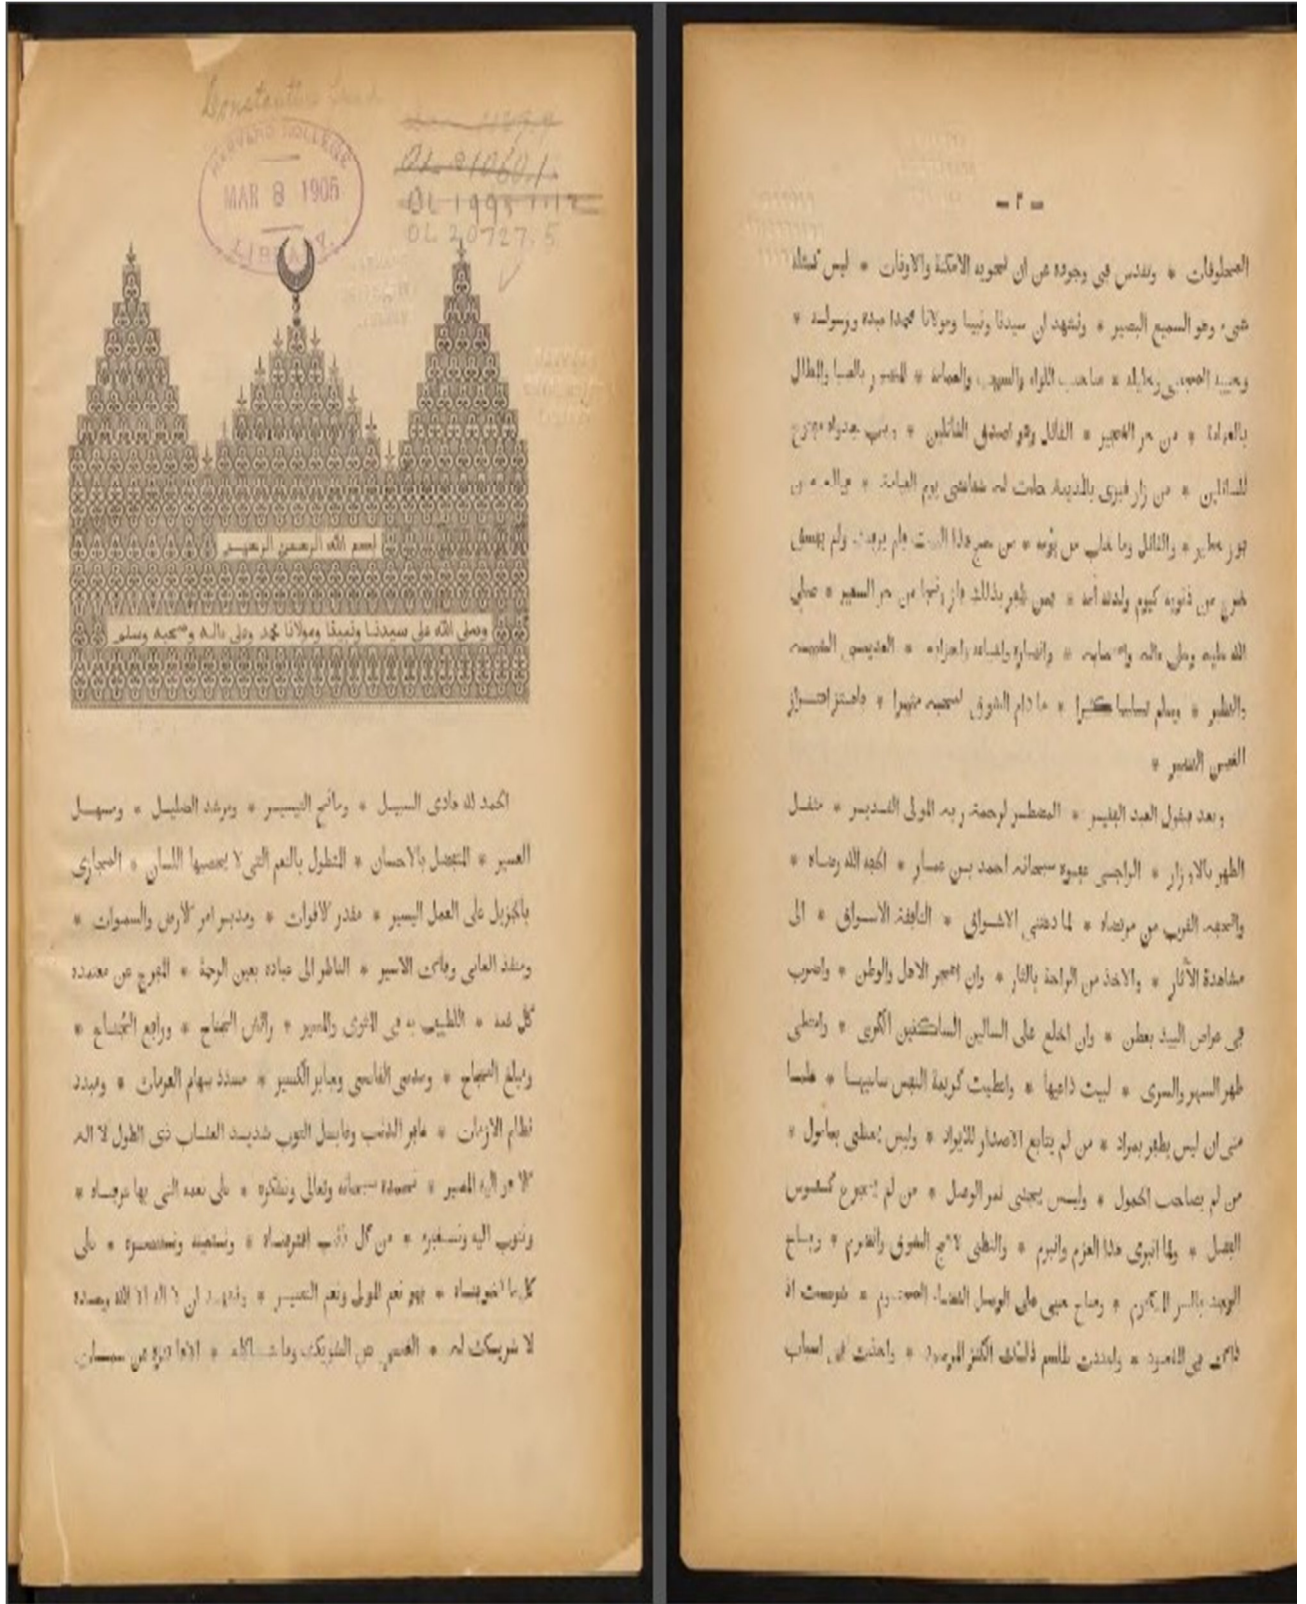 HARVARD COLLEGE
MAR 8 1905
LIBRARY
OL 20727.5
بسم الله الرحمن الرحيم
وصلى الله على سيدنا ونبينا ومولانا محمد وعلى ءاله وصحبه وسلم
الحمد لله هادى السبيل * ومانح التيسير * ومرشد الضليل * ومسهل
العسير * المتفضل بالاحسان * المتطول بالنعم التى لا يحصيها اللسان * المجازى
بالجزيل على العمل اليسير * مقدر الاقوات * ومدبر امر الارض والسموات *
ومنقذ العانى وفاك الاسير * الناظر الى عباده بعين الرحمة * المفرج عن معتمده
كل غمة * اللطيف به فى المثوى والمسير * ورائش الجناح * ورافع الجناح *
ومبلغ النجاح * وجابر الكسير * مسدد سهام العزمات * ومبدد
نظام الازمات * غافر الذنب وقابل التوب شديد العقاب ذى الطول لا اله
الا هو اليه المصير * نحمده سبحانه وتعالى ونشكره * على نعمه التى بها
ونتوب اليه ونستغفره * من كل ذنب اقترفناه * ونستعينه ونستنصره * على
كل ما * فهو نعم المولى ونعم النصير * ونشهد ان لا اله الا الله وحده
لا شريك له * الغنى عن الشريك وما * عن سمات
— ٢ —
المخلوقات * وتقدس فى وجوده عن ان تحويه الامكنة والاوقات * ليس كمثله
شىء وهو السميع البصير * ونشهد ان سيدنا ونبينا ومولانا محمدا عبده ورسوله *
وحبيبه المجتبى وخليله * صاحب اللواء والعمامة * المنصور بالصبا والمظلل
بالغمامة * من حر الهجير * القائل وهو اصدق القائلين *
للسائلين * من زار قبرى بالمدينة حلت له شفاعتى يوم القيامة *
والقائل * من حج هذا البيت فلم يرفث ولم يفسق
خرج من ذنوبه كيوم ولدته امه * فمن ظفر بذلك فاز ونجا من حر السعير * صلى
الله عليه وعلى ءاله واصحابه * وانصاره واشياعه واحزابه *
والنظير * وسلم تسليما كثيرا * ما دام الشوق لمحبيه مثيرا * واهتز اهتزاز
الغصن النضير *
وبعد فيقول العبد الفقير * المضطر لرحمة ربه المولى القدير * مثقل
الظهر بالاوزار * الراجى عفوه سبحانه احمد بن عمار * الحفه الله رضاه *
واتحفه القرب من مرتضاه * لما دعتنى الاشواق * النافقة الاسواق * الى
مشاهدة الآثار * والاخذ من الراحة بالثار * وان اهجر الاهل والوطن * واضرب
فى عراض البيد بعطن * وان اخلع على السالين الساكنين الكرى * وامتطى
ظهر السهر والسرى * لبيت داعيها * واعطيت كريمة النفس ساعيها * علما
منى ان ليس يظفر بمراد * من لم يتابع الاصدار للايراد * وليس يحظى بمأمول *
من لم يصاحب الحمول * وليس يجتنى ثمر الوصل * من لم يتجرع كؤوس
الفصل * ولما انبرى هذا العزم وانبرم * والتظى لاعج الشوق واضطرم * وباح
الوجد بالسر المكتوم * * شرعت اذ
ذاك فى المقصود * واعددت طلسم ذلك الكنز المرصود * واخذت فى اسباب